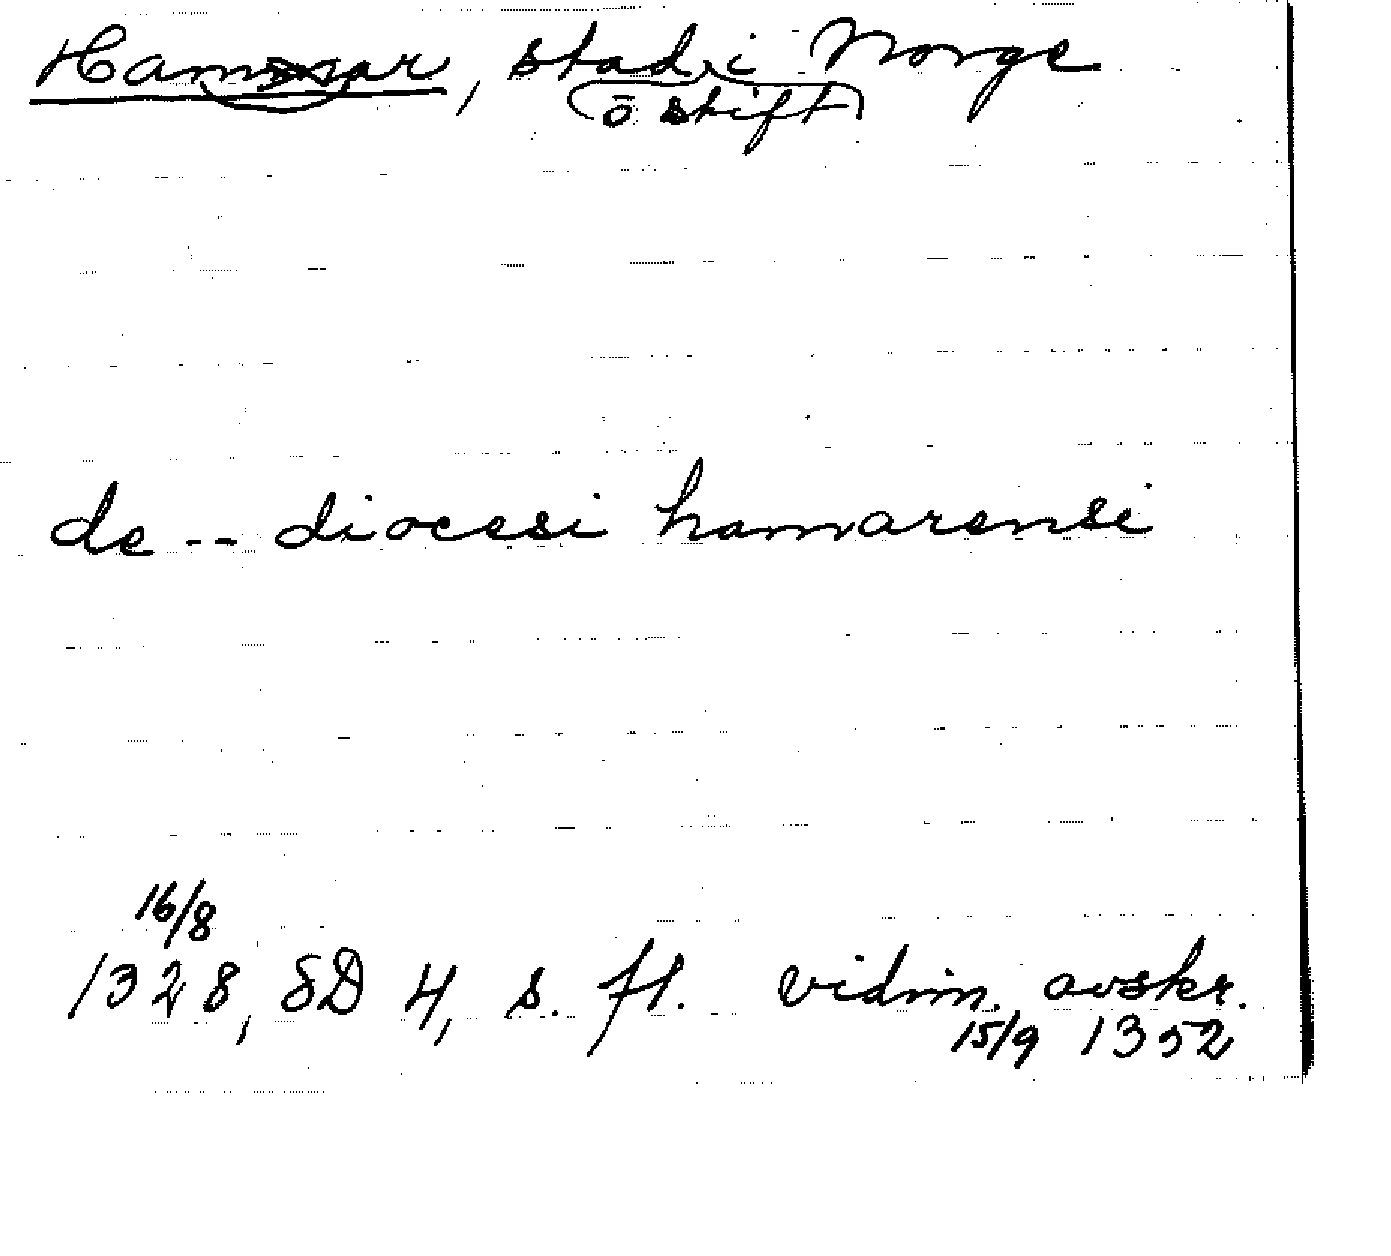 Hamar, stad i Norge
(ō stift)
de -- diocesi hamarensi
16/8
1328, SD 4, s. 71. vidim. avskr.
15/9 1352